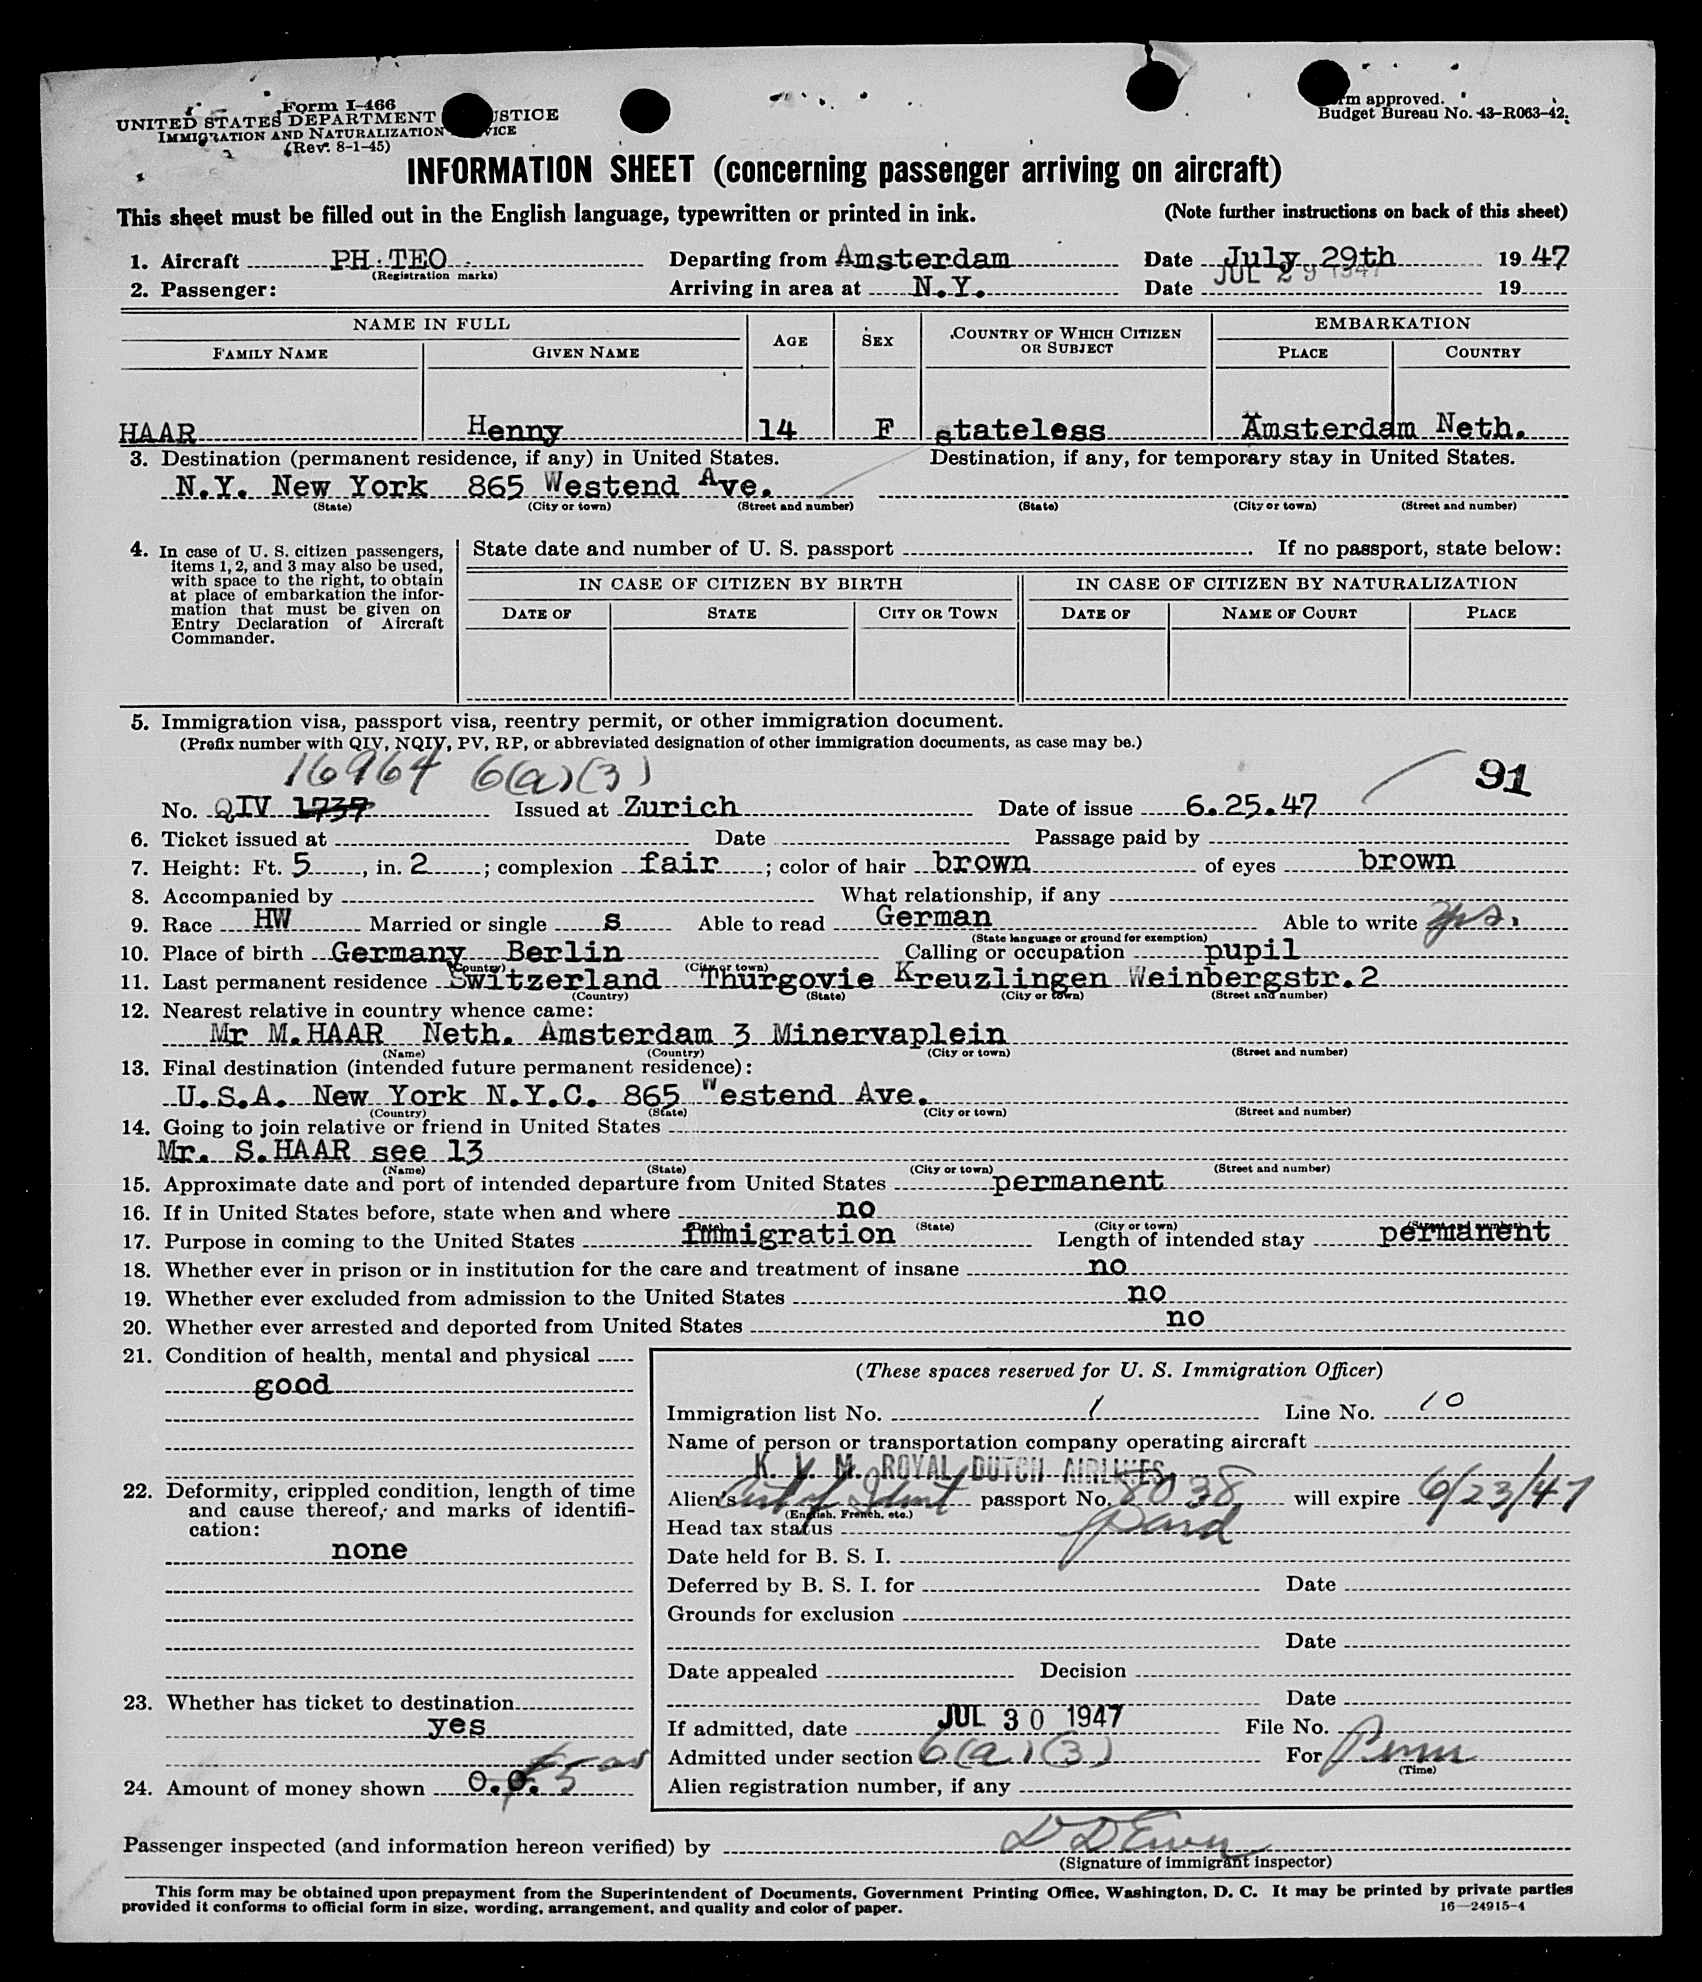 Form I-466
UNITED STATES DEPARTMENT STICE
IMMIGRATION AND NATURALIZATION VICE
(Rev. 8-1-45)
rm approved.
Budget Bureau No. 43-R063-42.
INFORMATION SHEET (concerning passenger arriving on aircraft)
This sheet must be filled out in the English language, typewritten or printed in ink. (Note further instructions on back of this sheet)
1. Aircraft PH.TEO Departing from Amsterdam Date July 29th 1947
(Registration marks)
2. Passenger: Arriving in area at N.Y. Date JUL 29 1947 19
NAME IN FULL AGE SEX COUNTRY OF WHICH CITIZEN OR SUBJECT EMBARKATION
FAMILY NAME GIVEN NAME PLACE COUNTRY
HAAR Henny 14 F stateless Amsterdam Neth.
3. Destination (permanent residence, if any) in United States. Destination, if any, for temporary stay in United States.
N.Y. New York 865 Westend Ave.
(State) (City or town) (Street and number) (State) (City or town) (Street and number)
4. In case of U. S. citizen passengers, items 1, 2, and 3 may also be used, with space to the right, to obtain at place of embarkation the information that must be given on Entry Declaration of Aircraft Commander.
State date and number of U. S. passport If no passport, state below:
IN CASE OF CITIZEN BY BIRTH IN CASE OF CITIZEN BY NATURALIZATION
DATE OF STATE CITY OR TOWN DATE OF NAME OF COURT PLACE
5. Immigration visa, passport visa, reentry permit, or other immigration document.
(Prefix number with QIV, NQIV, PV, RP, or abbreviated designation of other immigration documents, as case may be.)
16964 6(a)(3) 91
No. QIV 1737 Issued at Zurich Date of issue 6.25.47
6. Ticket issued at Date Passage paid by
7. Height: Ft. 5, in. 2; complexion fair; color of hair brown of eyes brown
8. Accompanied by What relationship, if any
9. Race HW Married or single s Able to read German Able to write yes.
(State language or ground for exemption)
10. Place of birth Germany Berlin Calling or occupation pupil
(Country) (City or town)
11. Last permanent residence Switzerland Thurgovie Kreuzlingen Weinbergstr.2
(Country) (State) (City or town) (Street and number)
12. Nearest relative in country whence came:
Mr M.HAAR Neth. Amsterdam 3 Minervaplein
(Name) (Country) (City or town) (Street and number)
13. Final destination (intended future permanent residence):
U.S.A. New York N.Y.C. 865 Westend Ave.
(Country) (State) (City or town) (Street and number)
14. Going to join relative or friend in United States
Mr. S.HAAR see 13
(Name) (State) (City or town) (Street and number)
15. Approximate date and port of intended departure from United States permanent
16. If in United States before, state when and where no
(Date) (State) (City or town) (Street and number)
17. Purpose in coming to the United States immigration Length of intended stay permanent
18. Whether ever in prison or in institution for the care and treatment of insane no
19. Whether ever excluded from admission to the United States no
20. Whether ever arrested and deported from United States no
21. Condition of health, mental and physical
good
22. Deformity, crippled condition, length of time
and cause thereof; and marks of identifi-
cation:
none
23. Whether has ticket to destination
yes
24. Amount of money shown 0.0.
(These spaces reserved for U. S. Immigration Officer)
Immigration list No. 1 Line No. 10
Name of person or transportation company operating aircraft
K. L. M. ROYAL DUTCH AIRLINES
Alien's Cert of Ident passport No. 8038 will expire 6/23/47
(English, French, etc.)
Head tax status paid
Date held for B. S. I.
Deferred by B. S. I. for Date
Grounds for exclusion
Date
Date appealed Decision
Date
If admitted, date JUL 30 1947 File No.
Admitted under section 6(a)(3) For Perm
(Time)
Alien registration number, if any
Passenger inspected (and information hereon verified) by
(Signature of immigrant inspector)
This form may be obtained upon prepayment from the Superintendent of Documents, Government Printing Office, Washington, D. C. It may be printed by private parties
provided it conforms to official form in size, wording, arrangement, and quality and color of paper. 16—24915-4